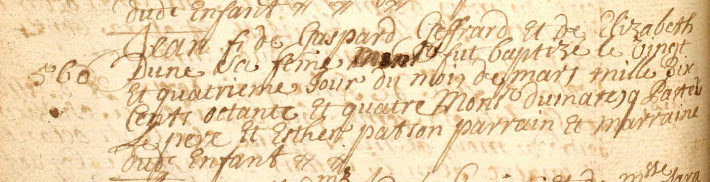 dudt Enfant
Jean fi de Gaspard Geffrard Et de Elizabeth
560 Dune sa feme fut baptize le vingt
Et quatrieme Jour du mois de mars mille Six
Cents octante Et quatre Monsr dumaresq
Le pere Et Esther patton parrain Et marraine
dudt Enfant